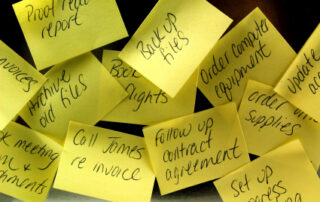 Proof read
report
Back up
files
Order computer
equipment
update
invoices
Archive
old files
Book
flights
order
supplies
meeting
Call James
re invoice
Follow up
contract
agreement
Set up